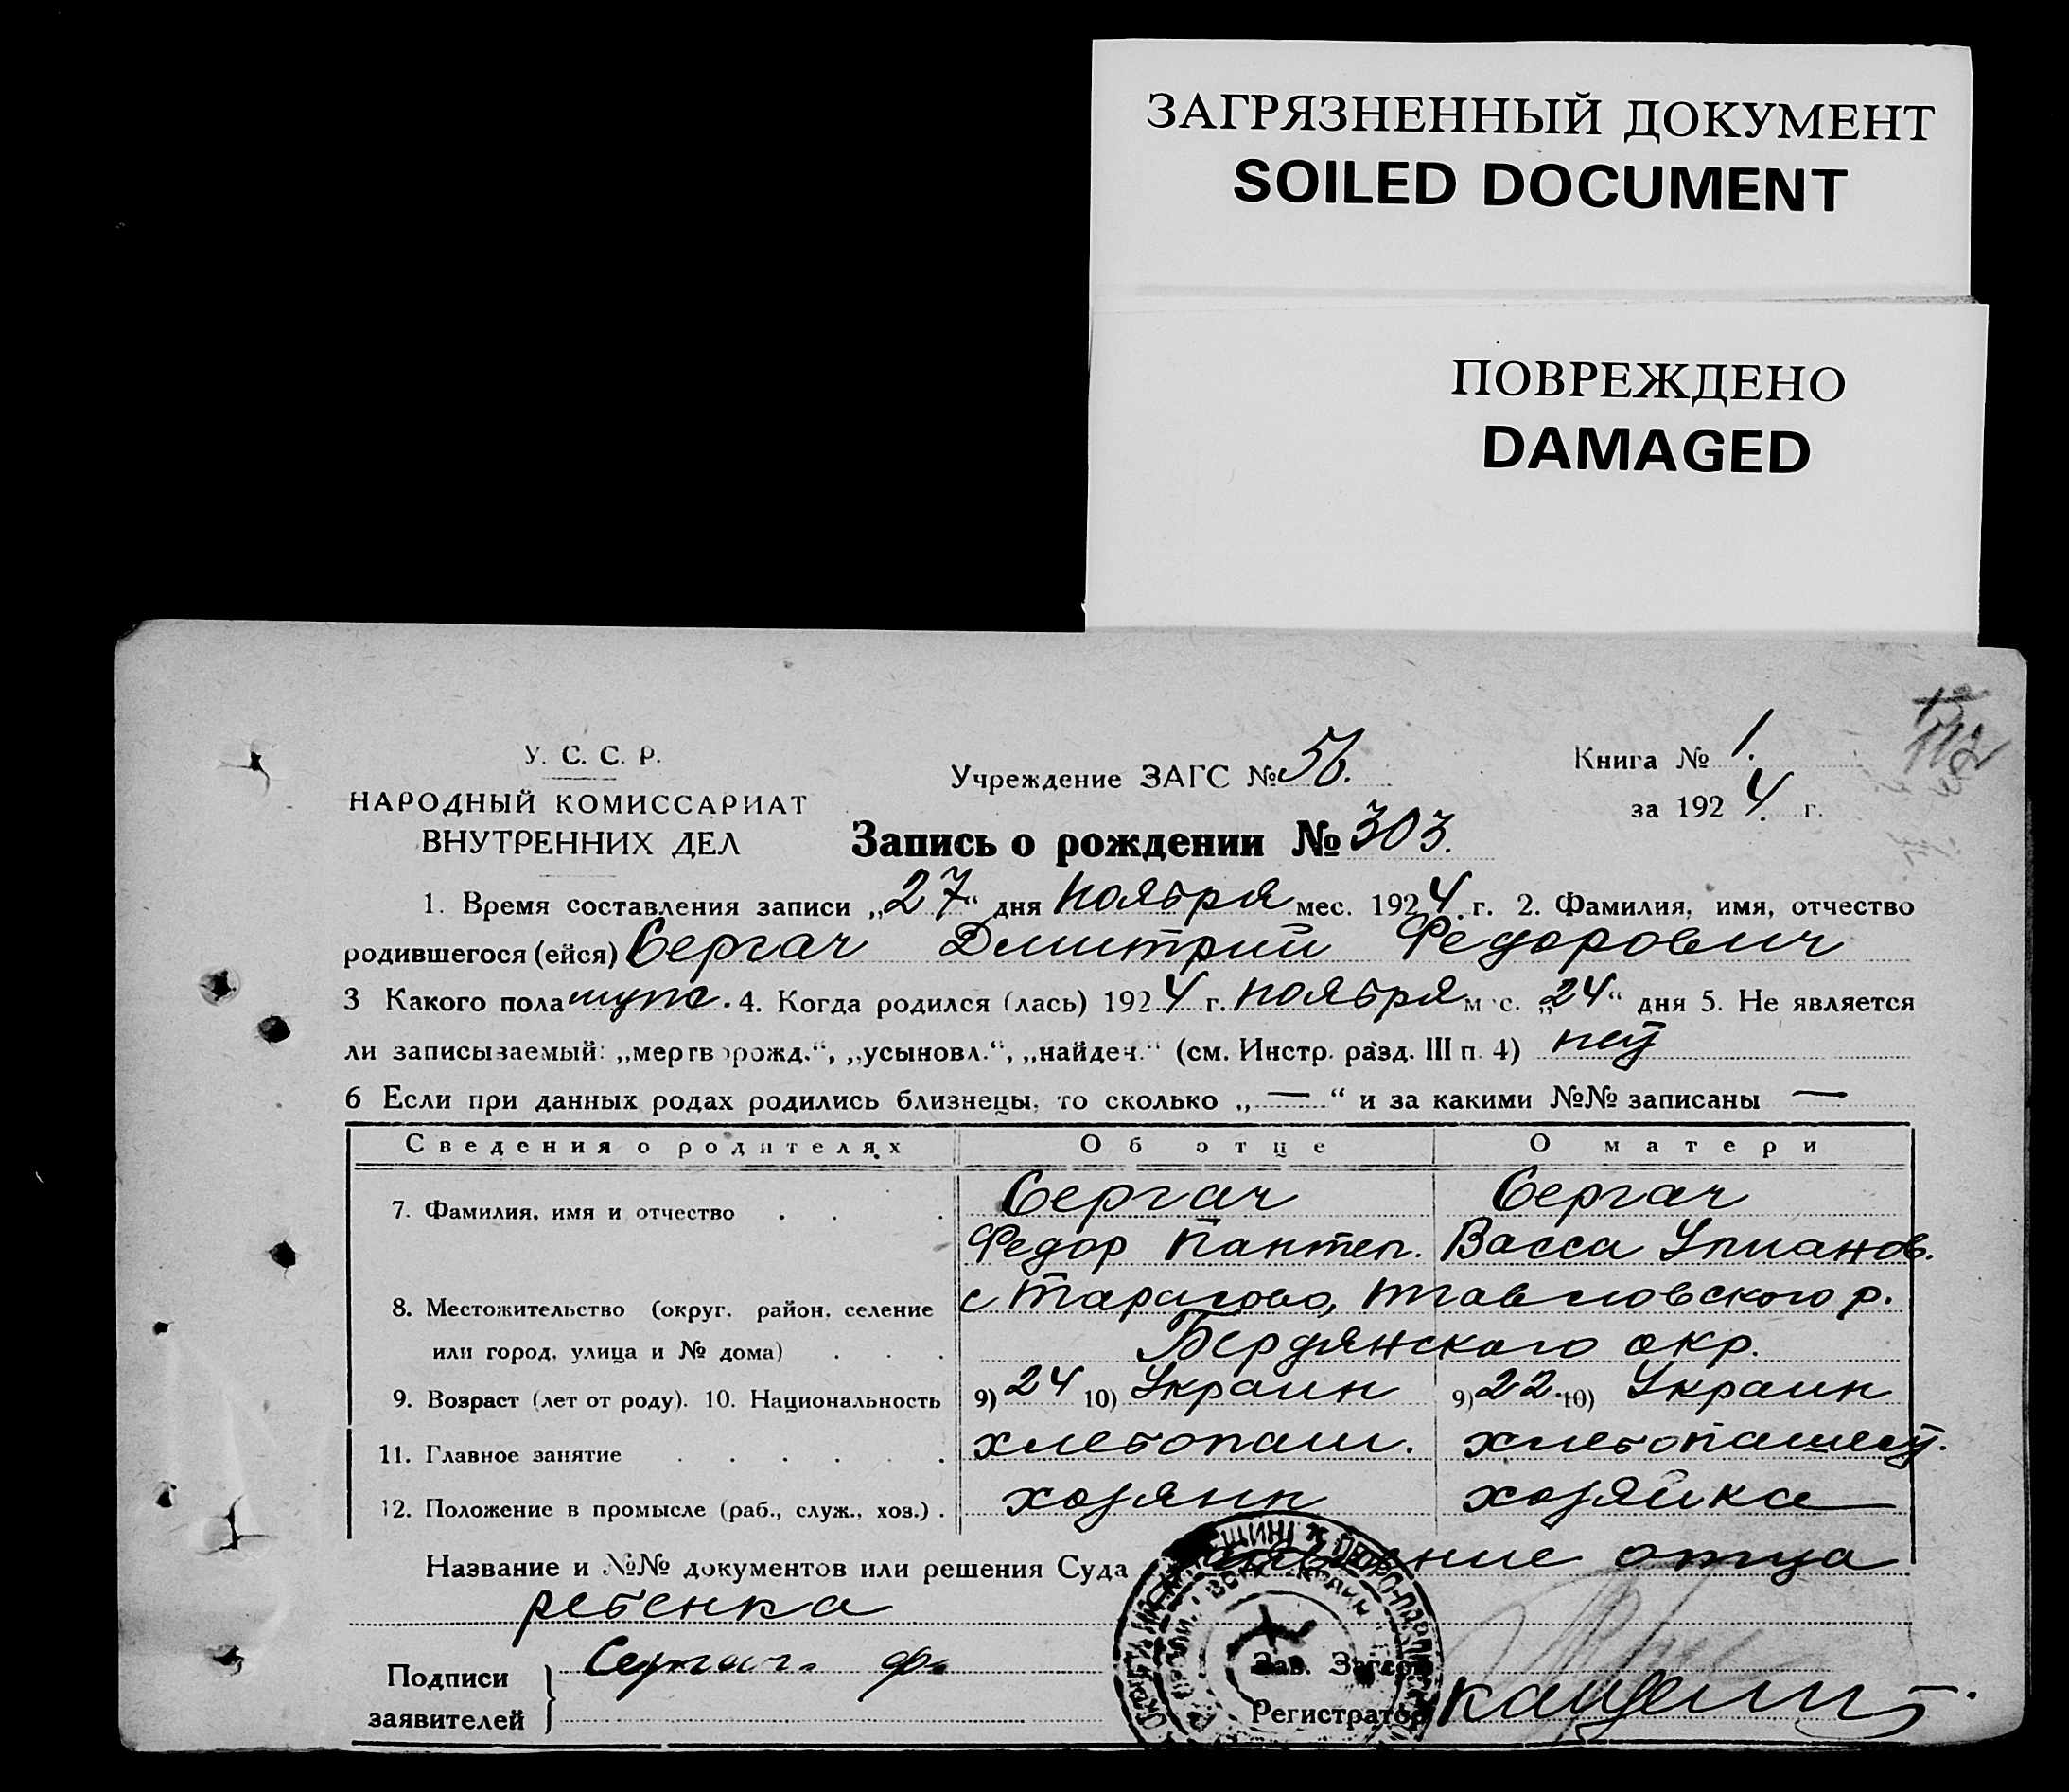 ЗАГРЯЗНЕННЫЙ ДОКУМЕНТ
SOILED DOCUMENT
ПОВРЕЖДЕНО
DAMAGED
У. С. С. Р.
НАРОДНЫЙ КОМИССАРИАТ
ВНУТРЕННИХ ДЕЛ
Учреждение ЗАГС № 56.
Книга № 1.
за 1924 г.
Запись о рождении № 303.
1. Время составления записи „27“ дня ноября мес. 1924 г. 2. Фамилия, имя, отчество
родившегося (ейся) Сергач Дмитрий Федорович
3 Какого пола мужс. 4. Когда родился (лась) 1924 г. ноября м с. „24“ дня 5. Не является
ли записываемый: „мертворожд.“, „усыновл.“, „найден.“ (см. Инстр. разд. III п. 4) нет
6 Если при данных родах родились близнецы, то сколько „—“ и за какими №№ записаны —
Сведения о родителях Об отце О матери
7. Фамилия, имя и отчество Сергач Сергач
Федор Пантел. Васса Улианов.
8. Местожительство (округ, район, селение с р.
или город, улица и № дома) Бердянского окр.
9. Возраст (лет от роду). 10. Национальность 9) 24 10) Украин 9) 22. 10) Украин
11. Главное занятие хлебопаш. хлебопашест.
12. Положение в промысле (раб., служ., хоз.) хозяин хозяйка
Название и №№ документов или решения Суда заявление отца
ребенка
Подписи
заявителей
Сергач Ф.
Зав. Загсом
Регистратор